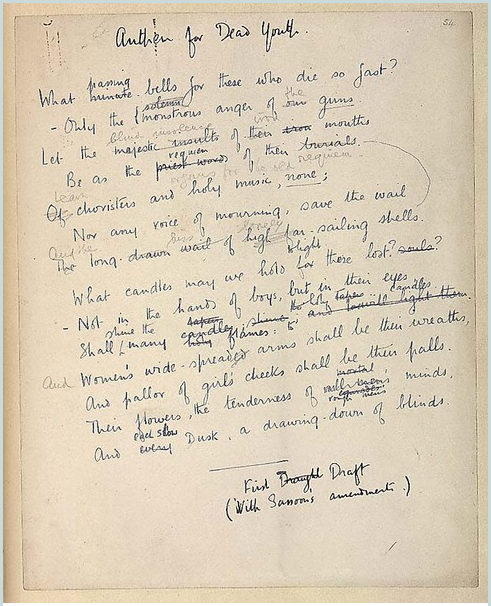 54.
Anthem for Dead Youth.
What passing minute-bells for these who die so fast?
solemn the
- Only the monstrous anger of our guns.
blind insolence iron
Let the majestic insults of their iron mouths
requiem
Be as the priest words of their burials.
requiem
Of choristers and holy music, none;
Nor any voice of mourning, save the wail
The long-drawn wail of high far-sailing shells.
light
What candles may we hold for these lost? souls?
- Not in the hands of boys, but in their eyes
shine the tapers candles
Shall many candles shine flames: and will light them.
And Women's wide-spreaded arms shall be their wreaths,
And pallor of girls' cheeks shall be their palls.
mortal
Their flowers, the tenderness of minds,
rough men's
each slow
And every Dusk, a drawing-down of blinds.
First Draught Draft
(With Sassoon's amendments.)